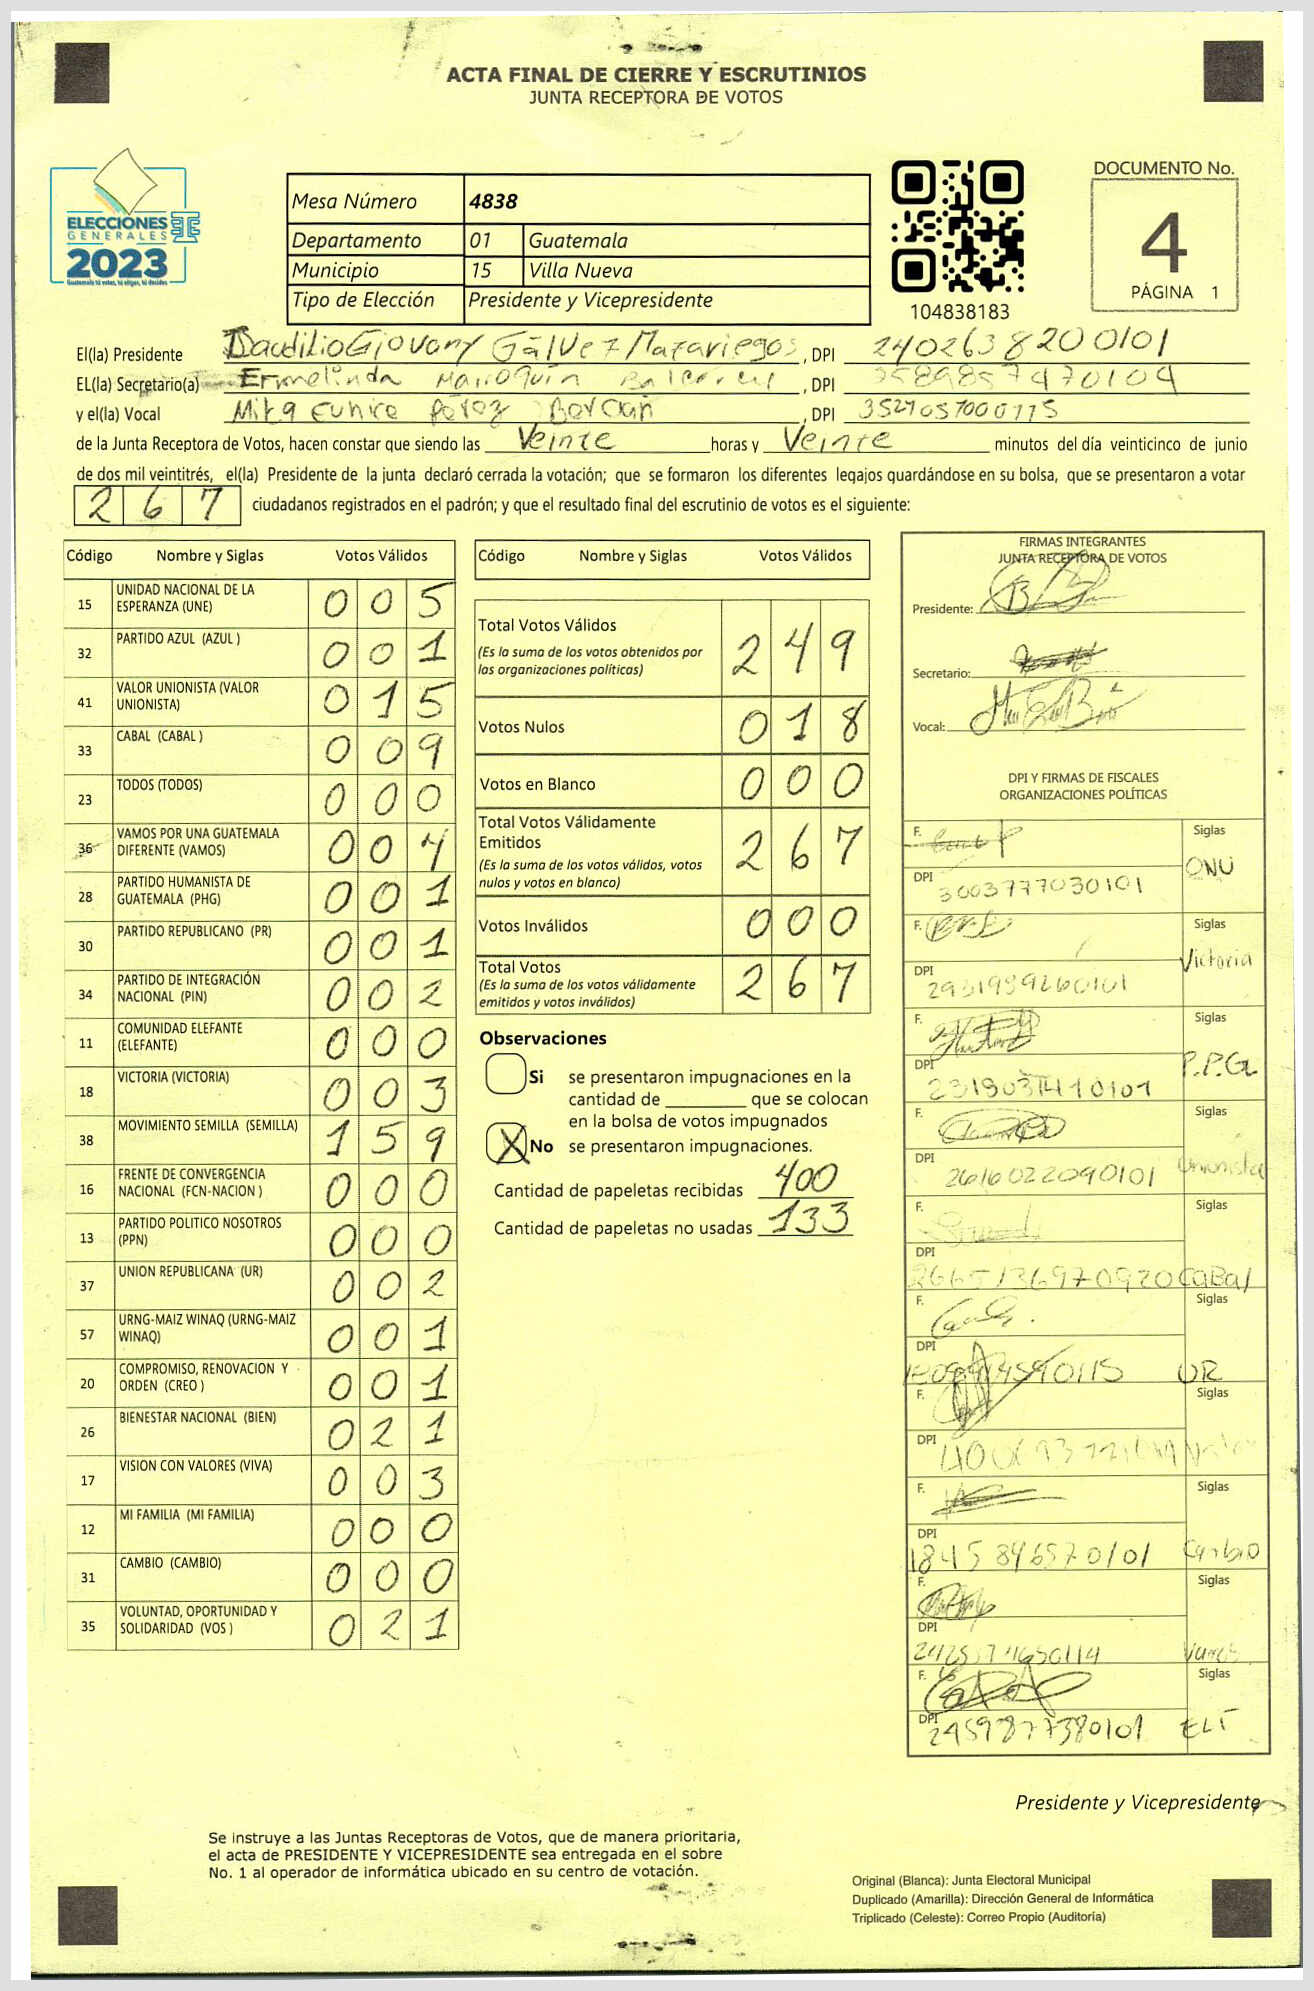 ACTA FINAL DE CIERRE Y ESCRUTINIOS
JUNTA RECEPTORA DE VOTOS
ELECCIONES
GENERALES
2023
Guatemala tú votas, tú eliges, tú decides
Mesa Número 4838
Departamento 01 Guatemala
Municipio 15 Villa Nueva
Tipo de Elección Presidente y Vicepresidente
104838183
DOCUMENTO No.
4
PÁGINA 1
El(la) Presidente Baudilio Giovany Gálvez Mazariegos, DPI 2402638200101
EL(la) Secretario(a) Ermelinda Marroquin, DPI
y el(la) Vocal Mitq Eunice Pérez, DPI
de la Junta Receptora de Votos, hacen constar que siendo las Veinte horas y Veinte minutos del día veinticinco de junio
de dos mil veintitrés, el(la) Presidente de la junta declaró cerrada la votación; que se formaron los diferentes legajos guardándose en su bolsa, que se presentaron a votar
267 ciudadanos registrados en el padrón; y que el resultado final del escrutinio de votos es el siguiente:
Código Nombre y Siglas Votos Válidos
15 UNIDAD NACIONAL DE LA ESPERANZA (UNE) 005
32 PARTIDO AZUL (AZUL ) 001
41 VALOR UNIONISTA (VALOR UNIONISTA) 015
33 CABAL (CABAL ) 009
23 TODOS (TODOS) 000
36 VAMOS POR UNA GUATEMALA DIFERENTE (VAMOS) 004
28 PARTIDO HUMANISTA DE GUATEMALA (PHG) 001
30 PARTIDO REPUBLICANO (PR) 001
34 PARTIDO DE INTEGRACIÓN NACIONAL (PIN) 002
11 COMUNIDAD ELEFANTE (ELEFANTE) 000
18 VICTORIA (VICTORIA) 003
38 MOVIMIENTO SEMILLA (SEMILLA) 159
16 FRENTE DE CONVERGENCIA NACIONAL (FCN-NACION ) 000
13 PARTIDO POLITICO NOSOTROS (PPN) 000
37 UNION REPUBLICANA (UR) 002
57 URNG-MAIZ WINAQ (URNG-MAIZ WINAQ) 001
20 COMPROMISO, RENOVACION Y ORDEN (CREO ) 001
26 BIENESTAR NACIONAL (BIEN) 021
17 VISION CON VALORES (VIVA) 003
12 MI FAMILIA (MI FAMILIA) 000
31 CAMBIO (CAMBIO) 000
35 VOLUNTAD, OPORTUNIDAD Y SOLIDARIDAD (VOS ) 021
Código Nombre y Siglas Votos Válidos
Total Votos Válidos 249
(Es la suma de los votos obtenidos por
las organizaciones políticas)
Votos Nulos 018
Votos en Blanco 000
Total Votos Válidamente
Emitidos 267
(Es la suma de los votos válidos, votos
nulos y votos en blanco)
Votos Inválidos 000
Total Votos 267
(Es la suma de los votos válidamente
emitidos y votos inválidos)
Observaciones
Si se presentaron impugnaciones en la
cantidad de ________ que se colocan
en la bolsa de votos impugnados
X No se presentaron impugnaciones.
Cantidad de papeletas recibidas 400
Cantidad de papeletas no usadas 133
FIRMAS INTEGRANTES
JUNTA RECEPTORA DE VOTOS
Presidente:
Secretario:
Vocal:
DPI Y FIRMAS DE FISCALES
ORGANIZACIONES POLÍTICAS
F. Siglas
DPI 3003777030101 ONU
F. Siglas
DPI Victoria
F. Siglas
DPI P.P.G
F. Siglas
DPI 2616022090101 Unionista
F. Siglas
DPI CaBal
F. Siglas
DPI UR
F. Siglas
DPI
F. Siglas
DPI Cambio
F. Siglas
DPI
F. Siglas
DPI 2459877380101
Presidente y Vicepresidente
Se instruye a las Juntas Receptoras de Votos, que de manera prioritaria,
el acta de PRESIDENTE Y VICEPRESIDENTE sea entregada en el sobre
No. 1 al operador de informática ubicado en su centro de votación.
Original (Blanca): Junta Electoral Municipal
Duplicado (Amarilla): Dirección General de Informática
Triplicado (Celeste): Correo Propio (Auditoría)